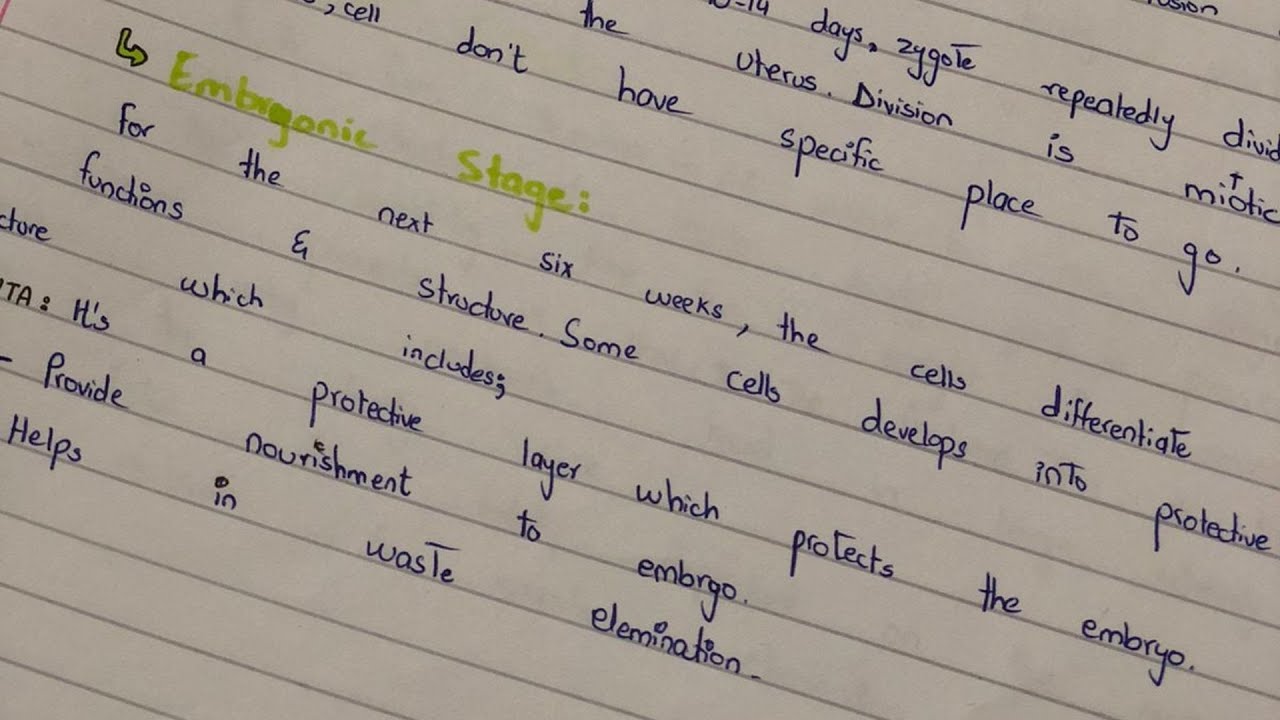 usion
-14 days, zygote repeatedly divid
the uterus. Division is mitotic
, cell don't have specific place to go.
↳ Embrgonic Stage:
for the next six weeks, the cells differentiate
functions & structure. Some cells develops into protective
cture which includes;
TA: It's a protective layer which protects the embryo.
- Provide nourishment to embrgo.
Helps in waste elemination.